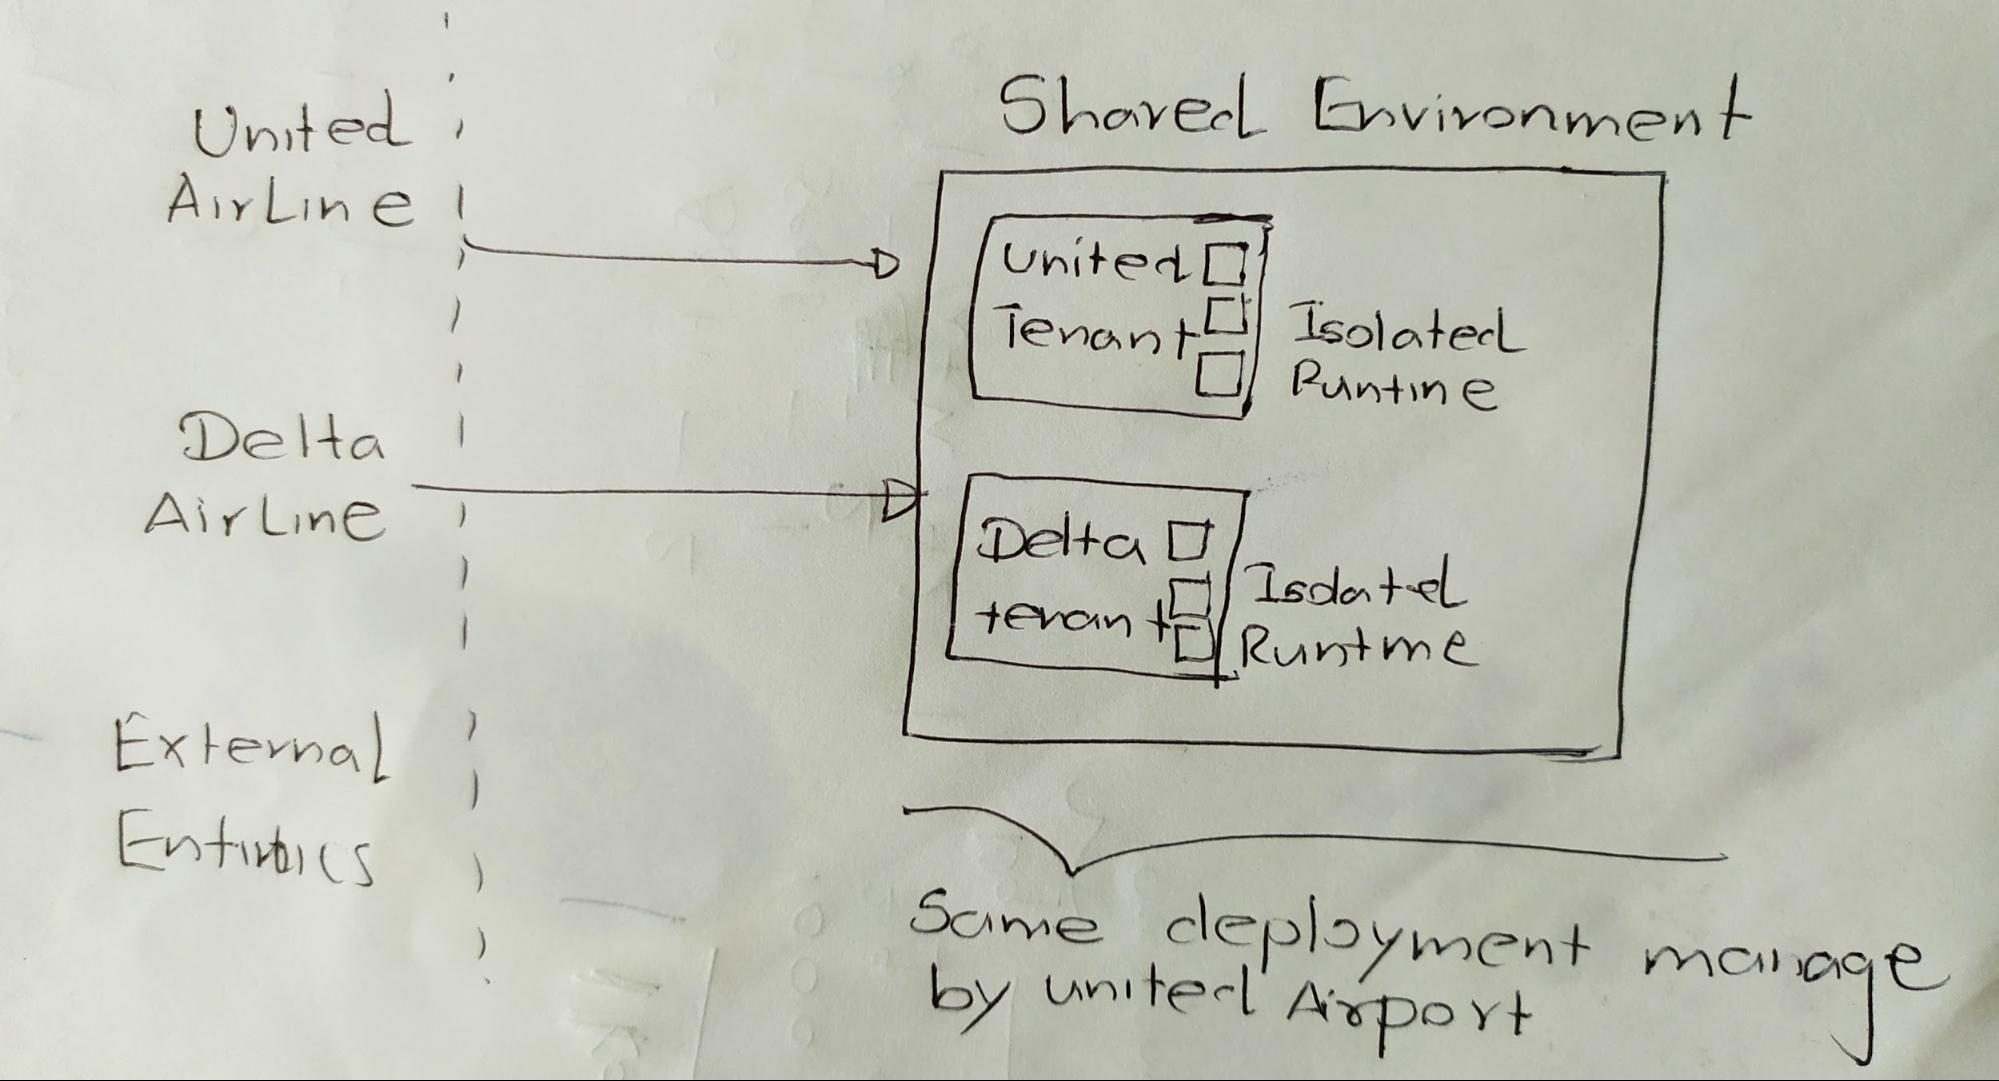 United
AirLine
Delta
AirLine
External
Shared Environment
United
Tenant
Isolated
Runtine
Delta
tenant
Isolated
Runtme
Same deployment manage
by united Airport